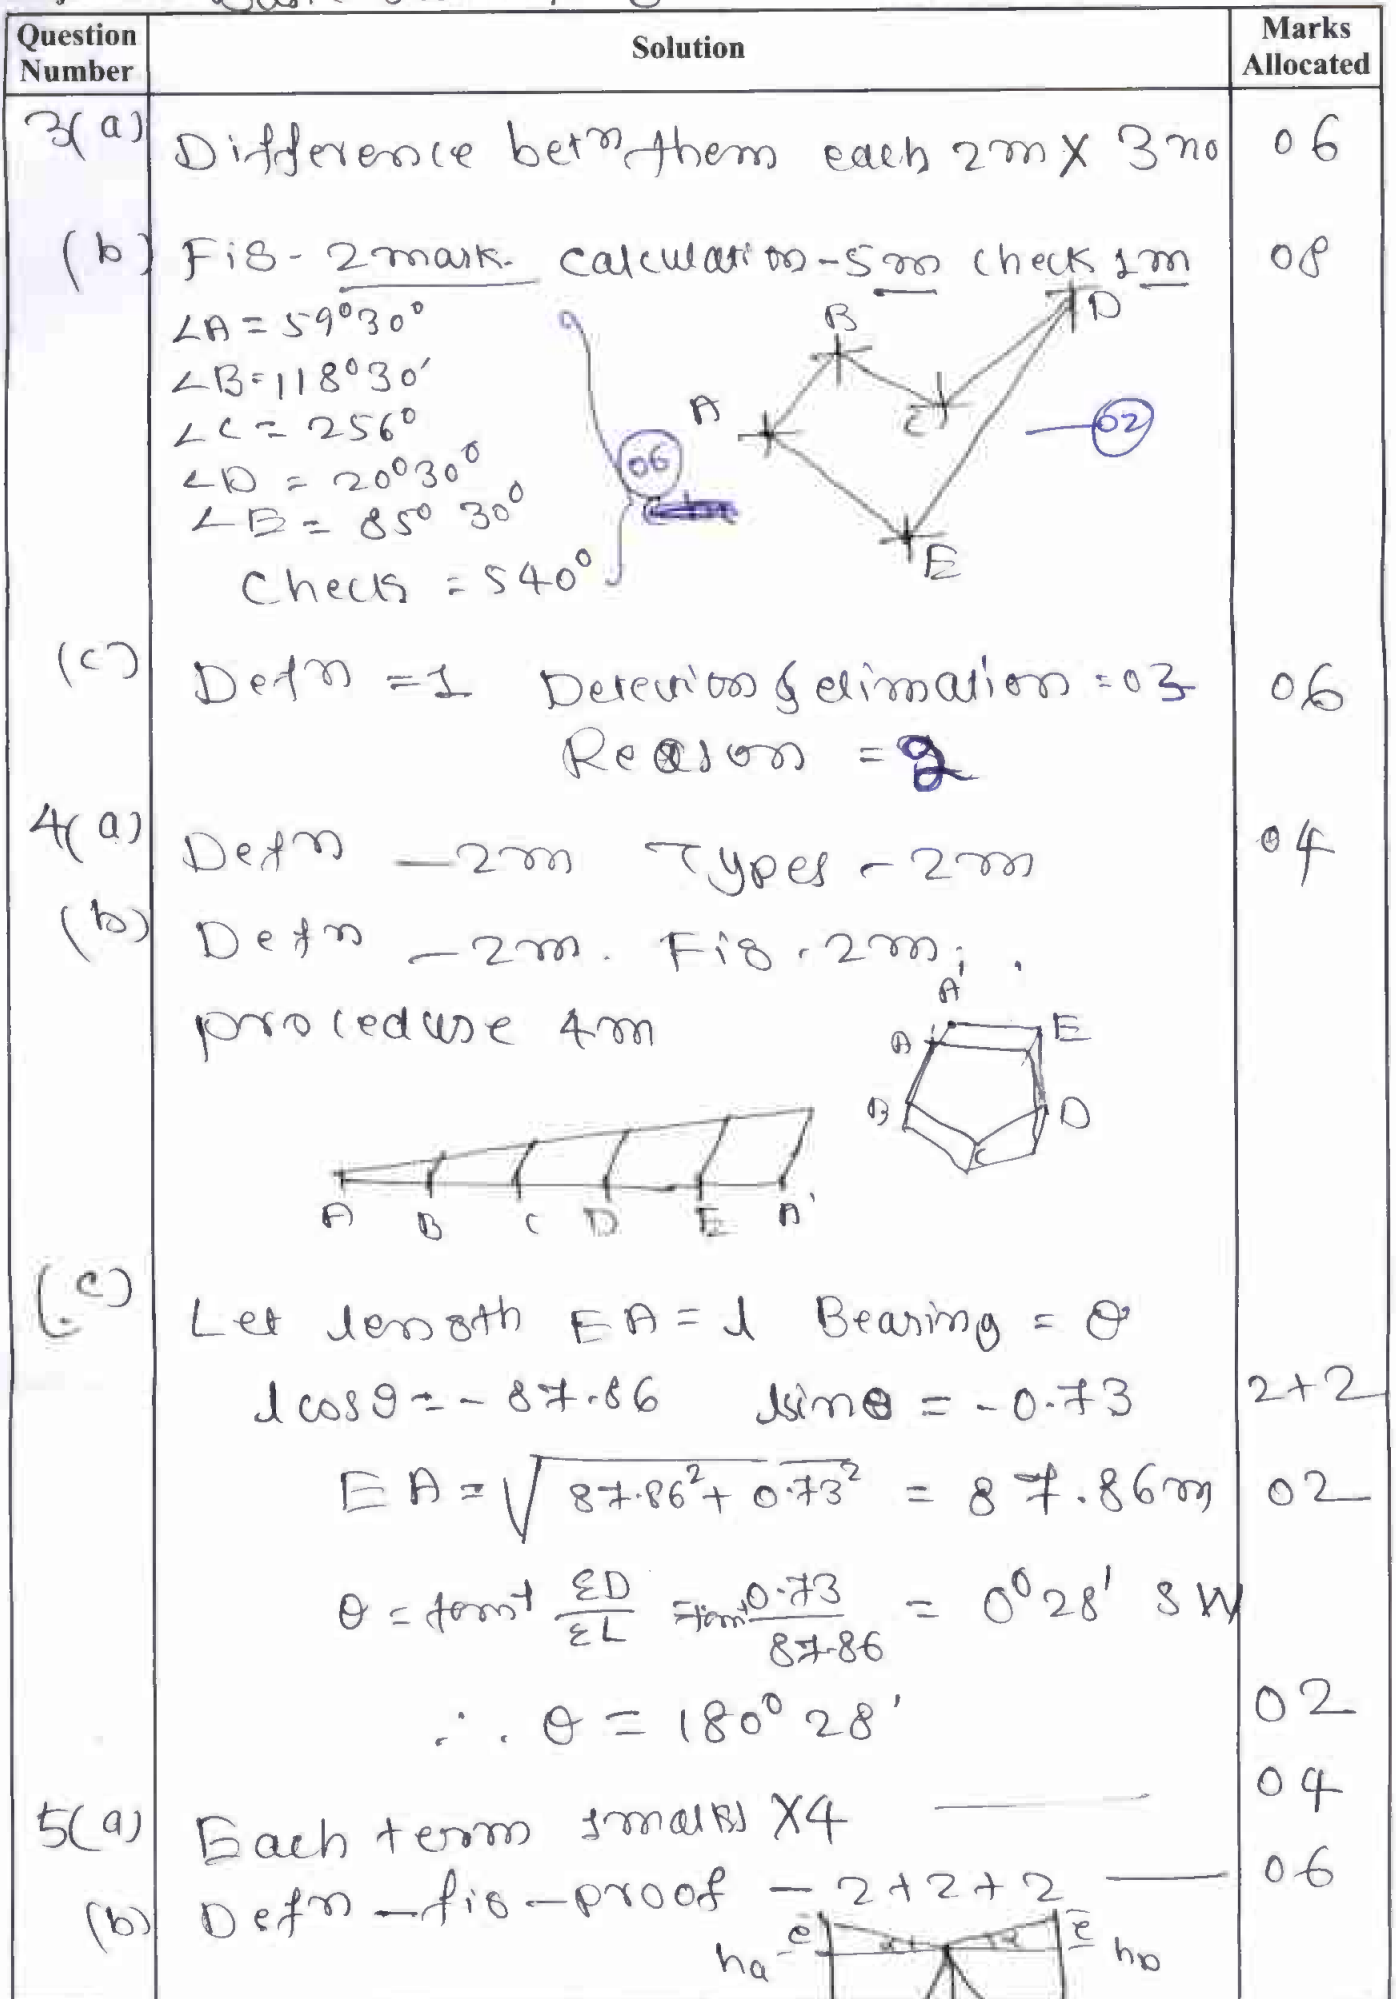 Question Number Solution Marks Allocated
3(a) Difference betn them each 2m X 3 no 06
(b) Fig - 2 mark. calculation - 5m check 1m 08
∠A = 59°30°
∠B = 118°30'
∠C = 256°
∠D = 20°30°
∠E = 85° 30°
Check = 540°
06
A B C D E
02
(c) Defn = 1 Detection & elimation = 03 06
Reason = 2
4(a) Defn – 2m Types – 2m 04
(b) Defn – 2m. Fig . 2m;
procedure 4m
A' A E B D C
A B C D E A'
(c) Let length EA = l Bearing = θ
l cosθ = - 87.86 lsinθ = - 0.73 2+2
EA = √87.86² + 0.73² = 87.86m 02
θ = tan⁻¹ ΣD/ΣL = tan⁻¹ 0.73/87.86 = 0°28' SW
∴ θ = 180° 28' 02
5(a) Each term 1marks X4 04
(b) Defn – fig – proof – 2+2+2 06
ha e α α e hb